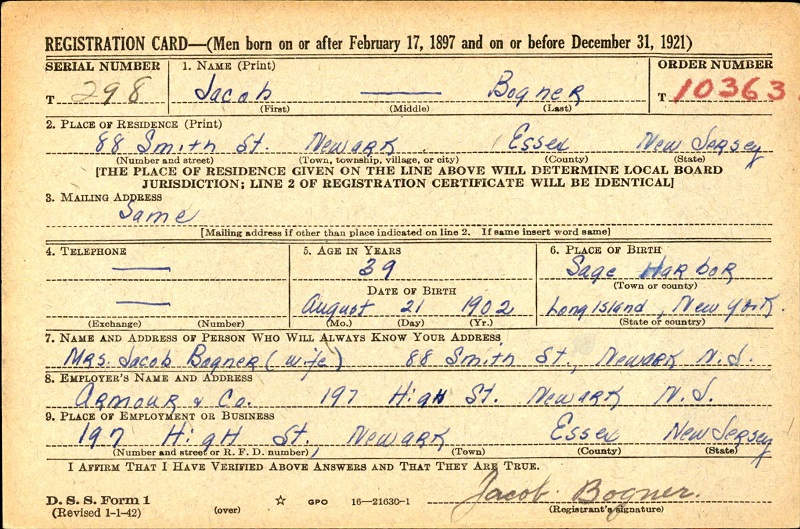 REGISTRATION CARD—(Men born on or after February 17, 1897 and on or before December 31, 1921)
SERIAL NUMBER 1. NAME (Print) ORDER NUMBER
T 298 Jacob —— Bogner T 10363
(First) (Middle) (Last)
2. PLACE OF RESIDENCE (Print)
88 Smith St. Newark Essex New Jersey
(Number and street) (Town, township, village, or city) (County) (State)
[THE PLACE OF RESIDENCE GIVEN ON THE LINE ABOVE WILL DETERMINE LOCAL BOARD
JURISDICTION; LINE 2 OF REGISTRATION CERTIFICATE WILL BE IDENTICAL]
3. MAILING ADDRESS
Same
[Mailing address if other than place indicated on line 2. If same insert word same]
4. TELEPHONE 5. AGE IN YEARS 6. PLACE OF BIRTH
—— 39 Sage Harbor
DATE OF BIRTH (Town or county)
—— August 21 1902 Long Island, New York.
(Exchange) (Number) (Mo.) (Day) (Yr.) (State or country)
7. NAME AND ADDRESS OF PERSON WHO WILL ALWAYS KNOW YOUR ADDRESS
Mrs. Jacob Bogner (wife) 88 Smith St., Newark N.J.
8. EMPLOYER'S NAME AND ADDRESS
Armour & Co. 197 High St. Newark N.J.
9. PLACE OF EMPLOYMENT OR BUSINESS
197 High St, Newark Essex New Jersey
(Number and street or R. F. D. number) (Town) (County) (State)
I AFFIRM THAT I HAVE VERIFIED ABOVE ANSWERS AND THAT THEY ARE TRUE.
D. S. S. Form 1 ☆ GPO 16—21630-1 Jacob Bogner.
(Revised 1-1-42) (over) (Registrant's signature)